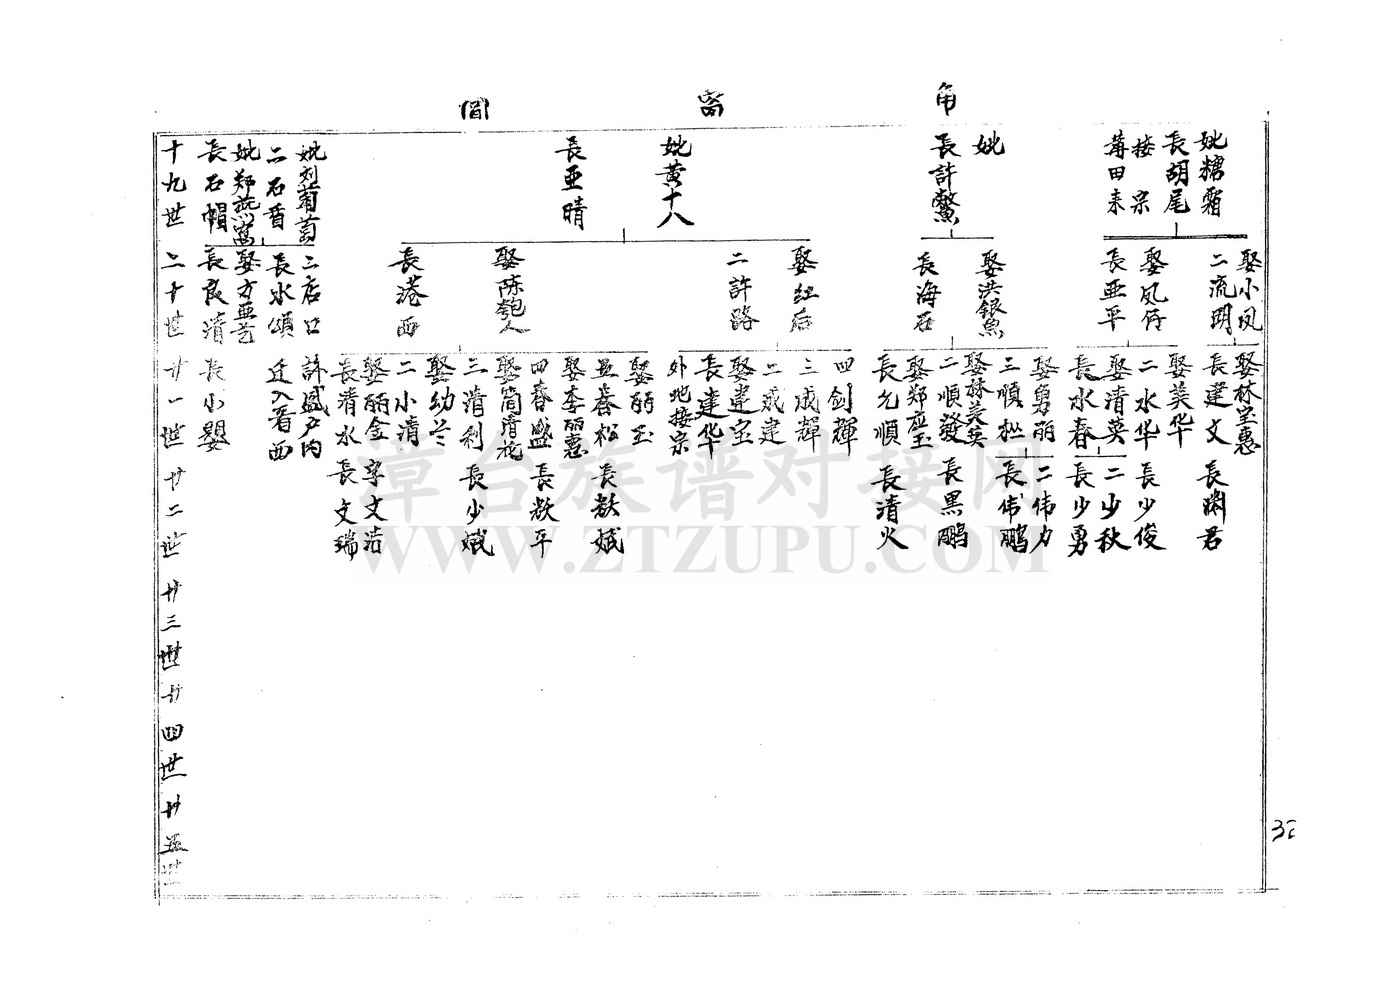 角
宮
間
妣糖霜
長胡尾
接宗
蒪田来
妣
長許鰲
妣黄十八
長亜晴
妣刘葡萄
二石香
妣郑燕窩
長石帽
十九世
娶小凤
二流明
娶凤仔
長亜平
娶洪银魚
長海石
娶红后
二許路
娶陈匏人
長港西
三店口
長水頌
娶方亜乞
長良清
二十世
娶林宝惠
長建文
娶美华
二水华
娶清英
長水春
娶勇丽
三順松
娶林美英
二順發
娶郑应玉
長允順
四剑輝
三成輝
二成建
娶建宝
長建华
外地接宗
娶丽玉
五春松
娶李丽惠
四春盛
娶简清花
三清利
娶幼兰
二小清
娶丽金
長清水
許盛户内
迁入香西
長小嬰
廿一世
長渊君
長少俊
二少秋
長少勇
二伟力
長伟鵬
長黑鵬
長清火
長慭娍
長慭平
長少娍
字文浩
長文瑞
廿二世
廿三世
廿四世
廿五世
草台族谱对接网
WWW.ZTZUPU.COM